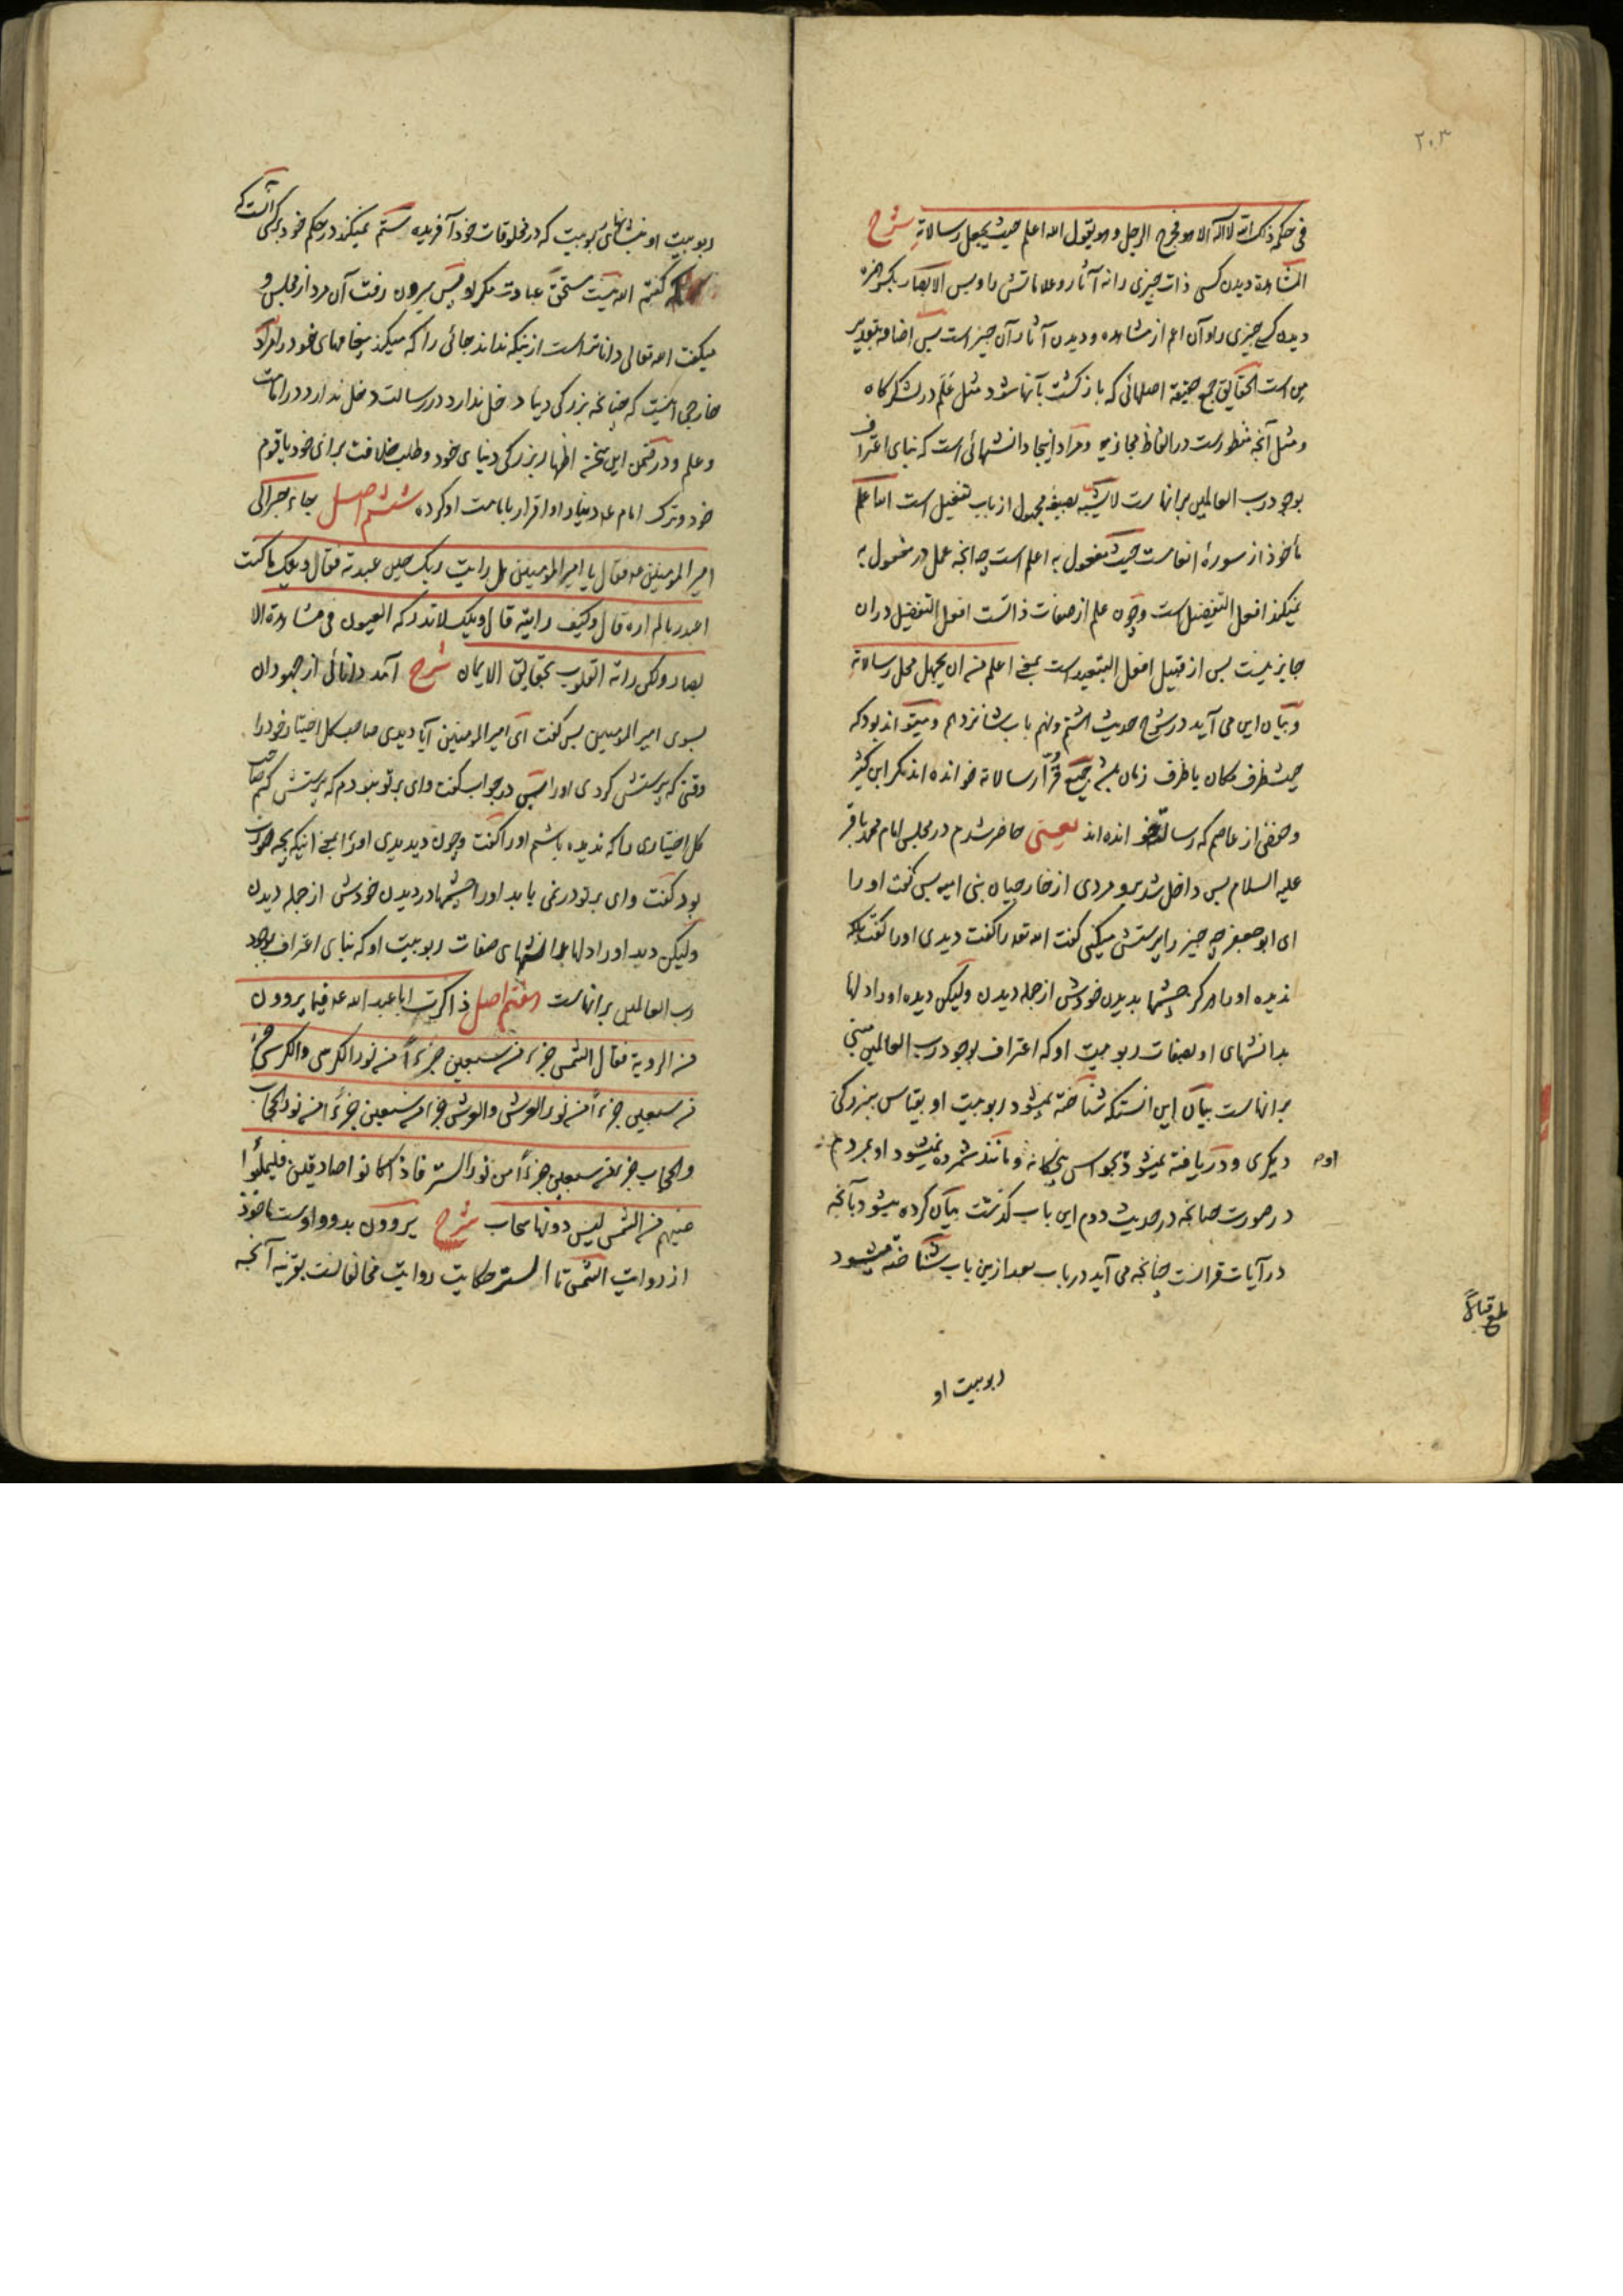 ۲۰۳
فی حکمه ذلک الله لا اله الا هو فخرج الرجل و هو یقول الله اعلم حیث یجعل رسالاته شرح
المشاهدة دیدن کسی ذات چیزی را نه آثار و علاماتش را و بس الابصار بکسر همزه
دیدن کسی چیزی را و آن اعم از مشاهده و دیدن آثار آن چیز است پس اضافه بتقدیر
من است الحقایق جمع حقیقه اصلهائی که بازکشت بآنها شود مثل عَلَم در لشکرکاه
و مثل آنچه منظورست در الفاظ مجازیه و مراد اینجا دانشهائی است که بنای اعتراف
بوجود رب العالمین بر انهاست لا یشبه بصیغهٔ مجهول از باب تفعیل است الله اعلم
مأخوذ از سورهٔ انعامست حیث مفعول به اعلم است چه انچه عمل در مفعول به
نمیکند افعل التفضیل است و چون علم از صفات ذاتست افعل التفضیل در ان
جایز نیست پس از قبیل افعل التبعید است بمعنی اعلم من ان یجهل محل رسالاته
و بیان این می آید در شرح حدیث هشتم و نهم باب شانزدهم و میتواند بود که
حیث ظرف مکان یا ظرف زمان باشد جمیع قُرّاء رسالاته خوانده اند مکر ابن کثیر
و حفص از عاصم که رسالته خوانده اند یعنی حاضر شدم در مجلس امام محمد باقر
علیه السلام پس داخل شد برو مردی از خارجیان بنی امیه پس کفت او را
ای ابو جعفر چه چیز را پرستش میکنی کفت الله تعه را کفت دیدی او را کفت بلکه
ندیده او را هرکز چشمها بدیدن خودش از جمله دیدن و لیکن دیده او را دلها
بدانشهای او بصفات ربوبیت او که اعتراف بوجود رب العالمین مبنی
بر انهاست بیان این انستکه شناخته نمیشود ربوبیت او بقیاس ببزرکی
دیکری و دریافته نمیشود بحواس پنجکانه و مانند شمرده نمیشود او بمردم
در صورت چنانچه در حدیث دوم این باب کذشت بیان کرده میشود بآنچه
در آیات قرانست چنانچه می آید در باب بعد ازین باب شناخته میشود
ربوبیت او
ربوبیت او بنشانهای ربوبیت که در مخلوقات خود آفریده ستم نمیکند در حکم خود بر کسی آنست که
کفتم الله نیست مستحق عبادت مکر او پس بیرون رفت آن مرد از مجلس و
میکفت الله تعالی داناتر است از اینکه نداند جائی را که میکند پیغامهای خود را مراد
خارجی اینست که چنانچه بزرکی دنیا دخل ندارد در رسالت دخل ندارد در امامت
و علم و در ضمن این سخن اظهار بزرکی دنیای خود و طلب خلافت برای خود یا قوم
خود و ترک امام علیه و بنیاد او اقرار بامامت او کرده ششم اصل جاء حبر الی
امیر المؤمنین عه فقال یا امیر المؤمنین هل رایت ربک حین عبدته فقال ویلک ما کنت
اعبد ربا لم اره قال و کیف رایته قال ویلک لا تدرکه العیون فی مشاهدة الا
بصار و لکن راته القلوب بحقایق الایمان شرح آمد دانائی از جهودان
بسوی امیر المومنین پس کفت ای امیر المومنین آیا دیدی صاحب کل اختیار خود را
وقتی که پرستش کردی او را پس در جواب کفت وای بر تو نبودم که پرستش کنم صاحب
کل اختیاری را که ندیده باشم او را کفت و چون دیدی او را بمعنی اینکه بچه صورت
بود کفت وای بر تو در نمی یابد او را چشمها در دیدن خودش از جمله دیدن
و لیکن دید او را دلها بدانشهای صفات ربوبیت او که بنای اعتراف بوجود
رب العالمین بر انهاست هفتم اصل ذاکرت ابا عبد الله عه فیما یروون
من الرویة فقال الشمس جزء من سبعین جزءاً من نور الکرسی و الکرسی جزء
من سبعین جزءاً من نور العرش و العرش جزء من سبعین جزءاً من نور الحجاب
و الحجاب جزء من سبعین جزءاً من نور الستر فاذا کانوا صادقین فلیملؤا
عینهم من الشمس لیس دونها سحاب شرح یروون بدو واوست مأخوذ
از روایت الشمس تا الستر حکایت روایت مخالفانست بقرینه آنچه